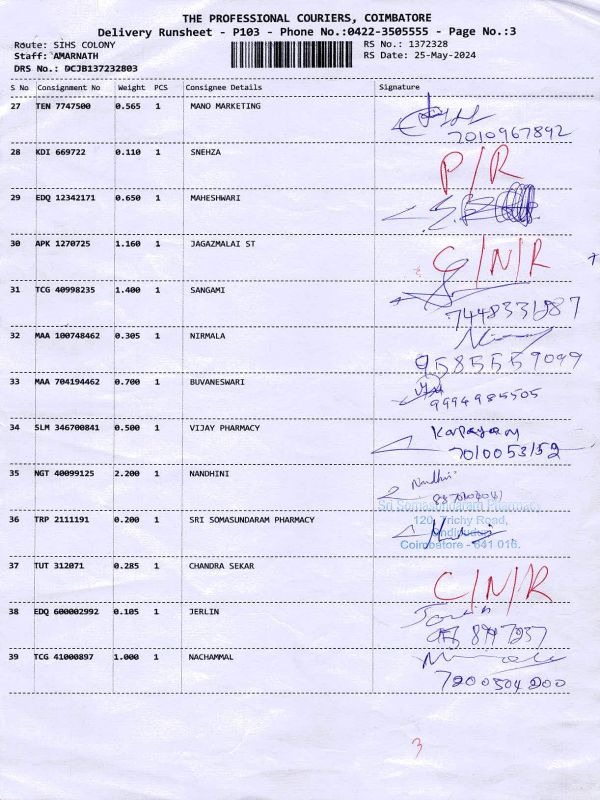 THE PROFESSIONAL COURIERS, COIMBATORE
Delivery Runsheet - P103 - Phone No.:0422-3505555 - Page No.:3
Route: SIHS COLONY
Staff: AMARNATH
DRS No.: DCJB137232803
RS No.: 1372328
RS Date: 25-May-2024
S No Consignment No Weight PCS Consignee Details Signature
27 TEN 7747500 0.565 1 MANO MARKETING
7010967892
28 KDI 669722 0.110 1 SNEHZA P/R
29 EDQ 12342171 0.650 1 MAHESHWARI
30 APK 1270725 1.160 1 JAGAZMALAI ST C/N/R
31 TCG 40998235 1.400 1 SANGAMI
32 MAA 100748462 0.305 1 NIRMALA
9585559099
33 MAA 704194462 0.700 1 BUVANESWARI
9994985505
34 SLM 346700841 0.500 1 VIJAY PHARMACY
7010053152
35 NGT 40099125 2.200 1 NANDHINI Nandhini
Sri Somasundaram Pharmacy
36 TRP 2111191 0.200 1 SRI SOMASUNDARAM PHARMACY 120, Trichy Road,
Coimbatore - 641 016.
37 TUT 312071 0.285 1 CHANDRA SEKAR C/N/R
38 EDQ 600002992 0.105 1 JERLIN
39 TCG 41000897 1.000 1 NACHAMMAL
7200504200
3